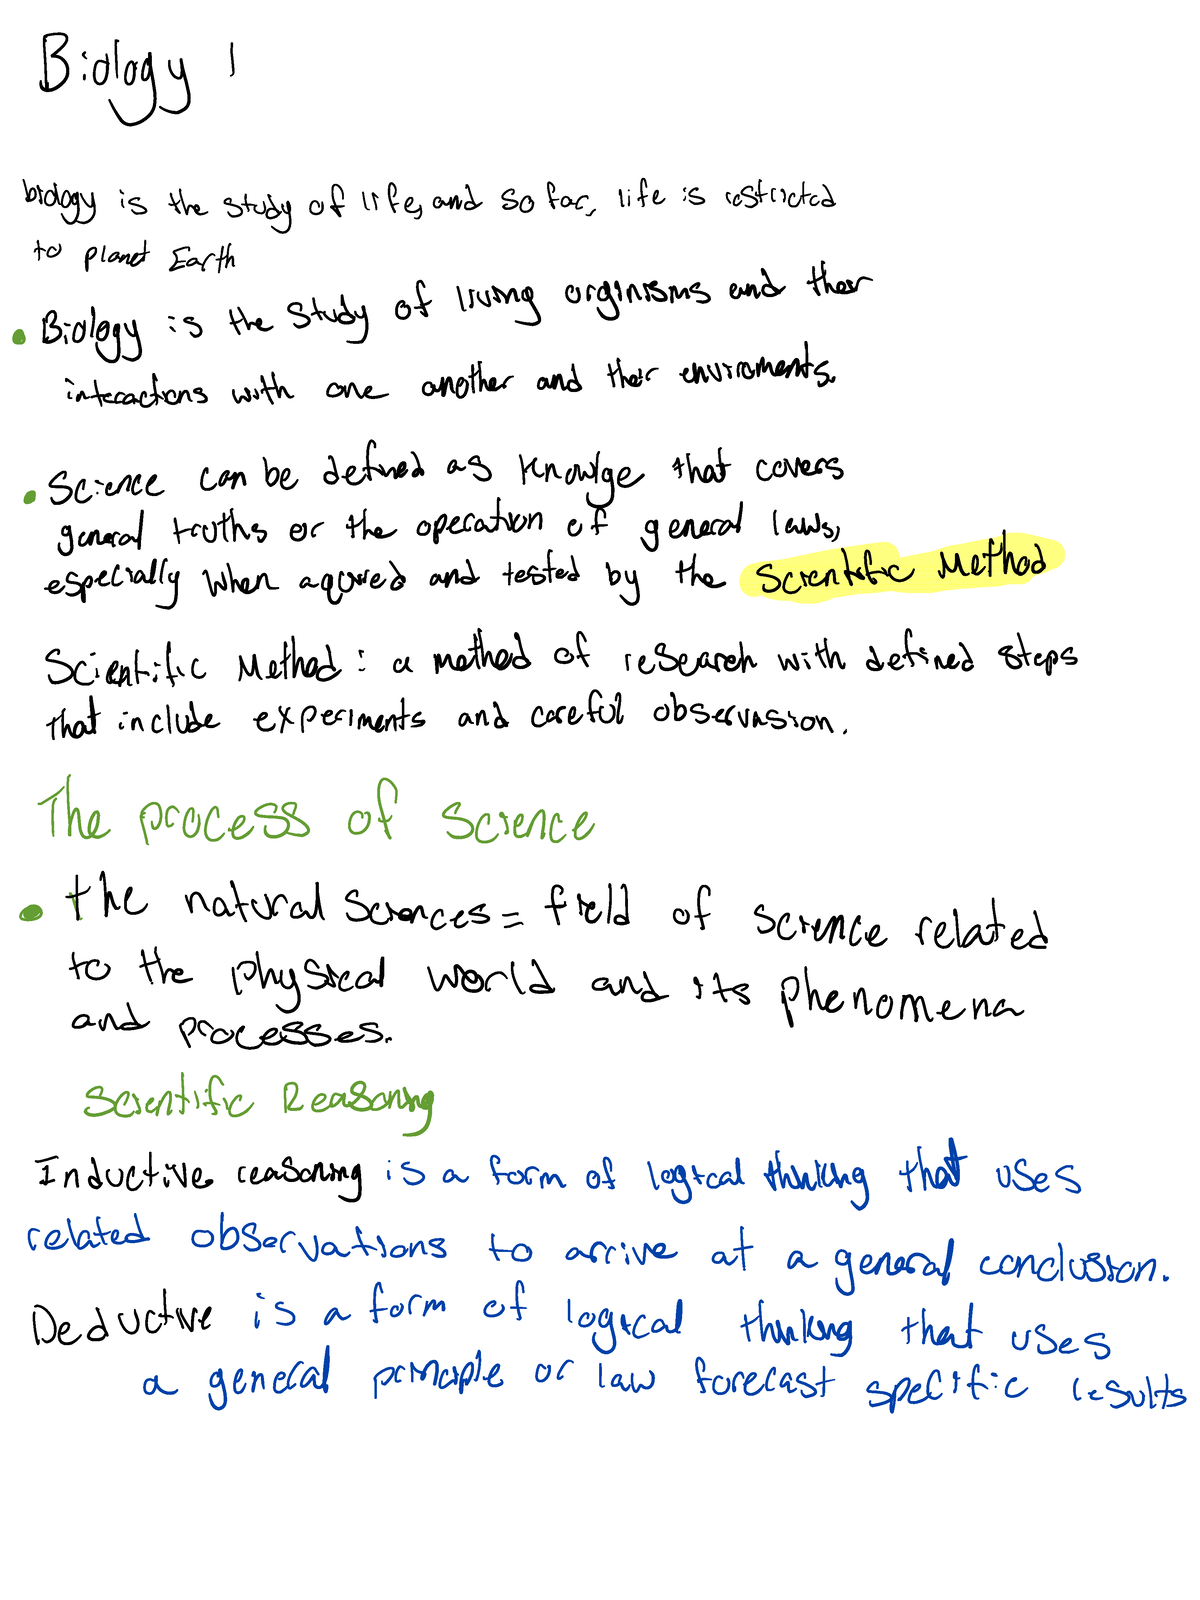 Biology 1
biology is the study of life, and so far, life is restricted
to planet Earth
• Biology is the study of living orginisms and their
interactions with one another and their enviroments.
• Science can be defined as knowlge that covers
general truths or the operation of general laws,
especially when aqured and tested by the Scientific Method
Scientific Method: a method of research with defined steps
that include experiments and careful observasion.
The process of science
• the natural sciences = field of science related
to the physical world and its phenomena
and processes.
Scientific Reasoning
Inductive reasoning is a form of logical thinking that uses
related observations to arrive at a general conclusion.
Deductive is a form of logical thinking that uses
a general principle or law forecast specific results